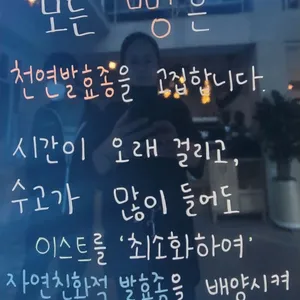 모든 빵은
천연발효종을 고집합니다.
시간이 오래 걸리고,
수고가 많이 들어도
이스트를 '최소화하여'
자연친화적 발효종을 배양시켜